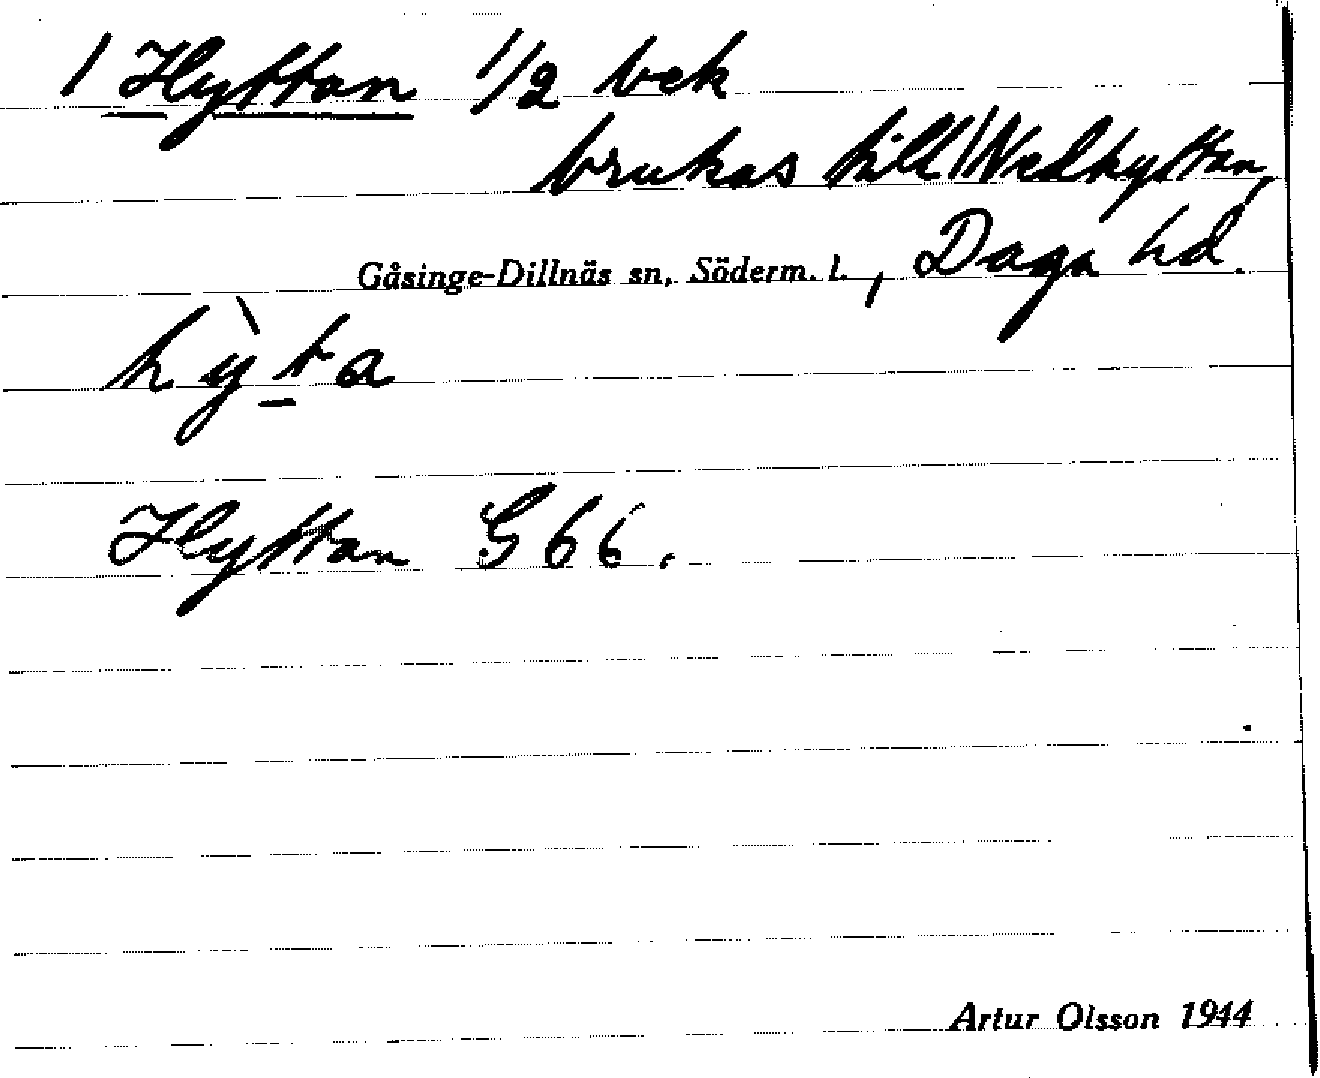 / Hyttan 1/2 bek
brukas till / Nedhyttan,
Gåsinge-Dillnäs sn, Söderm. l. , Daga hd.
hỳta
Hyttan G 66.
Artur Olsson 1944